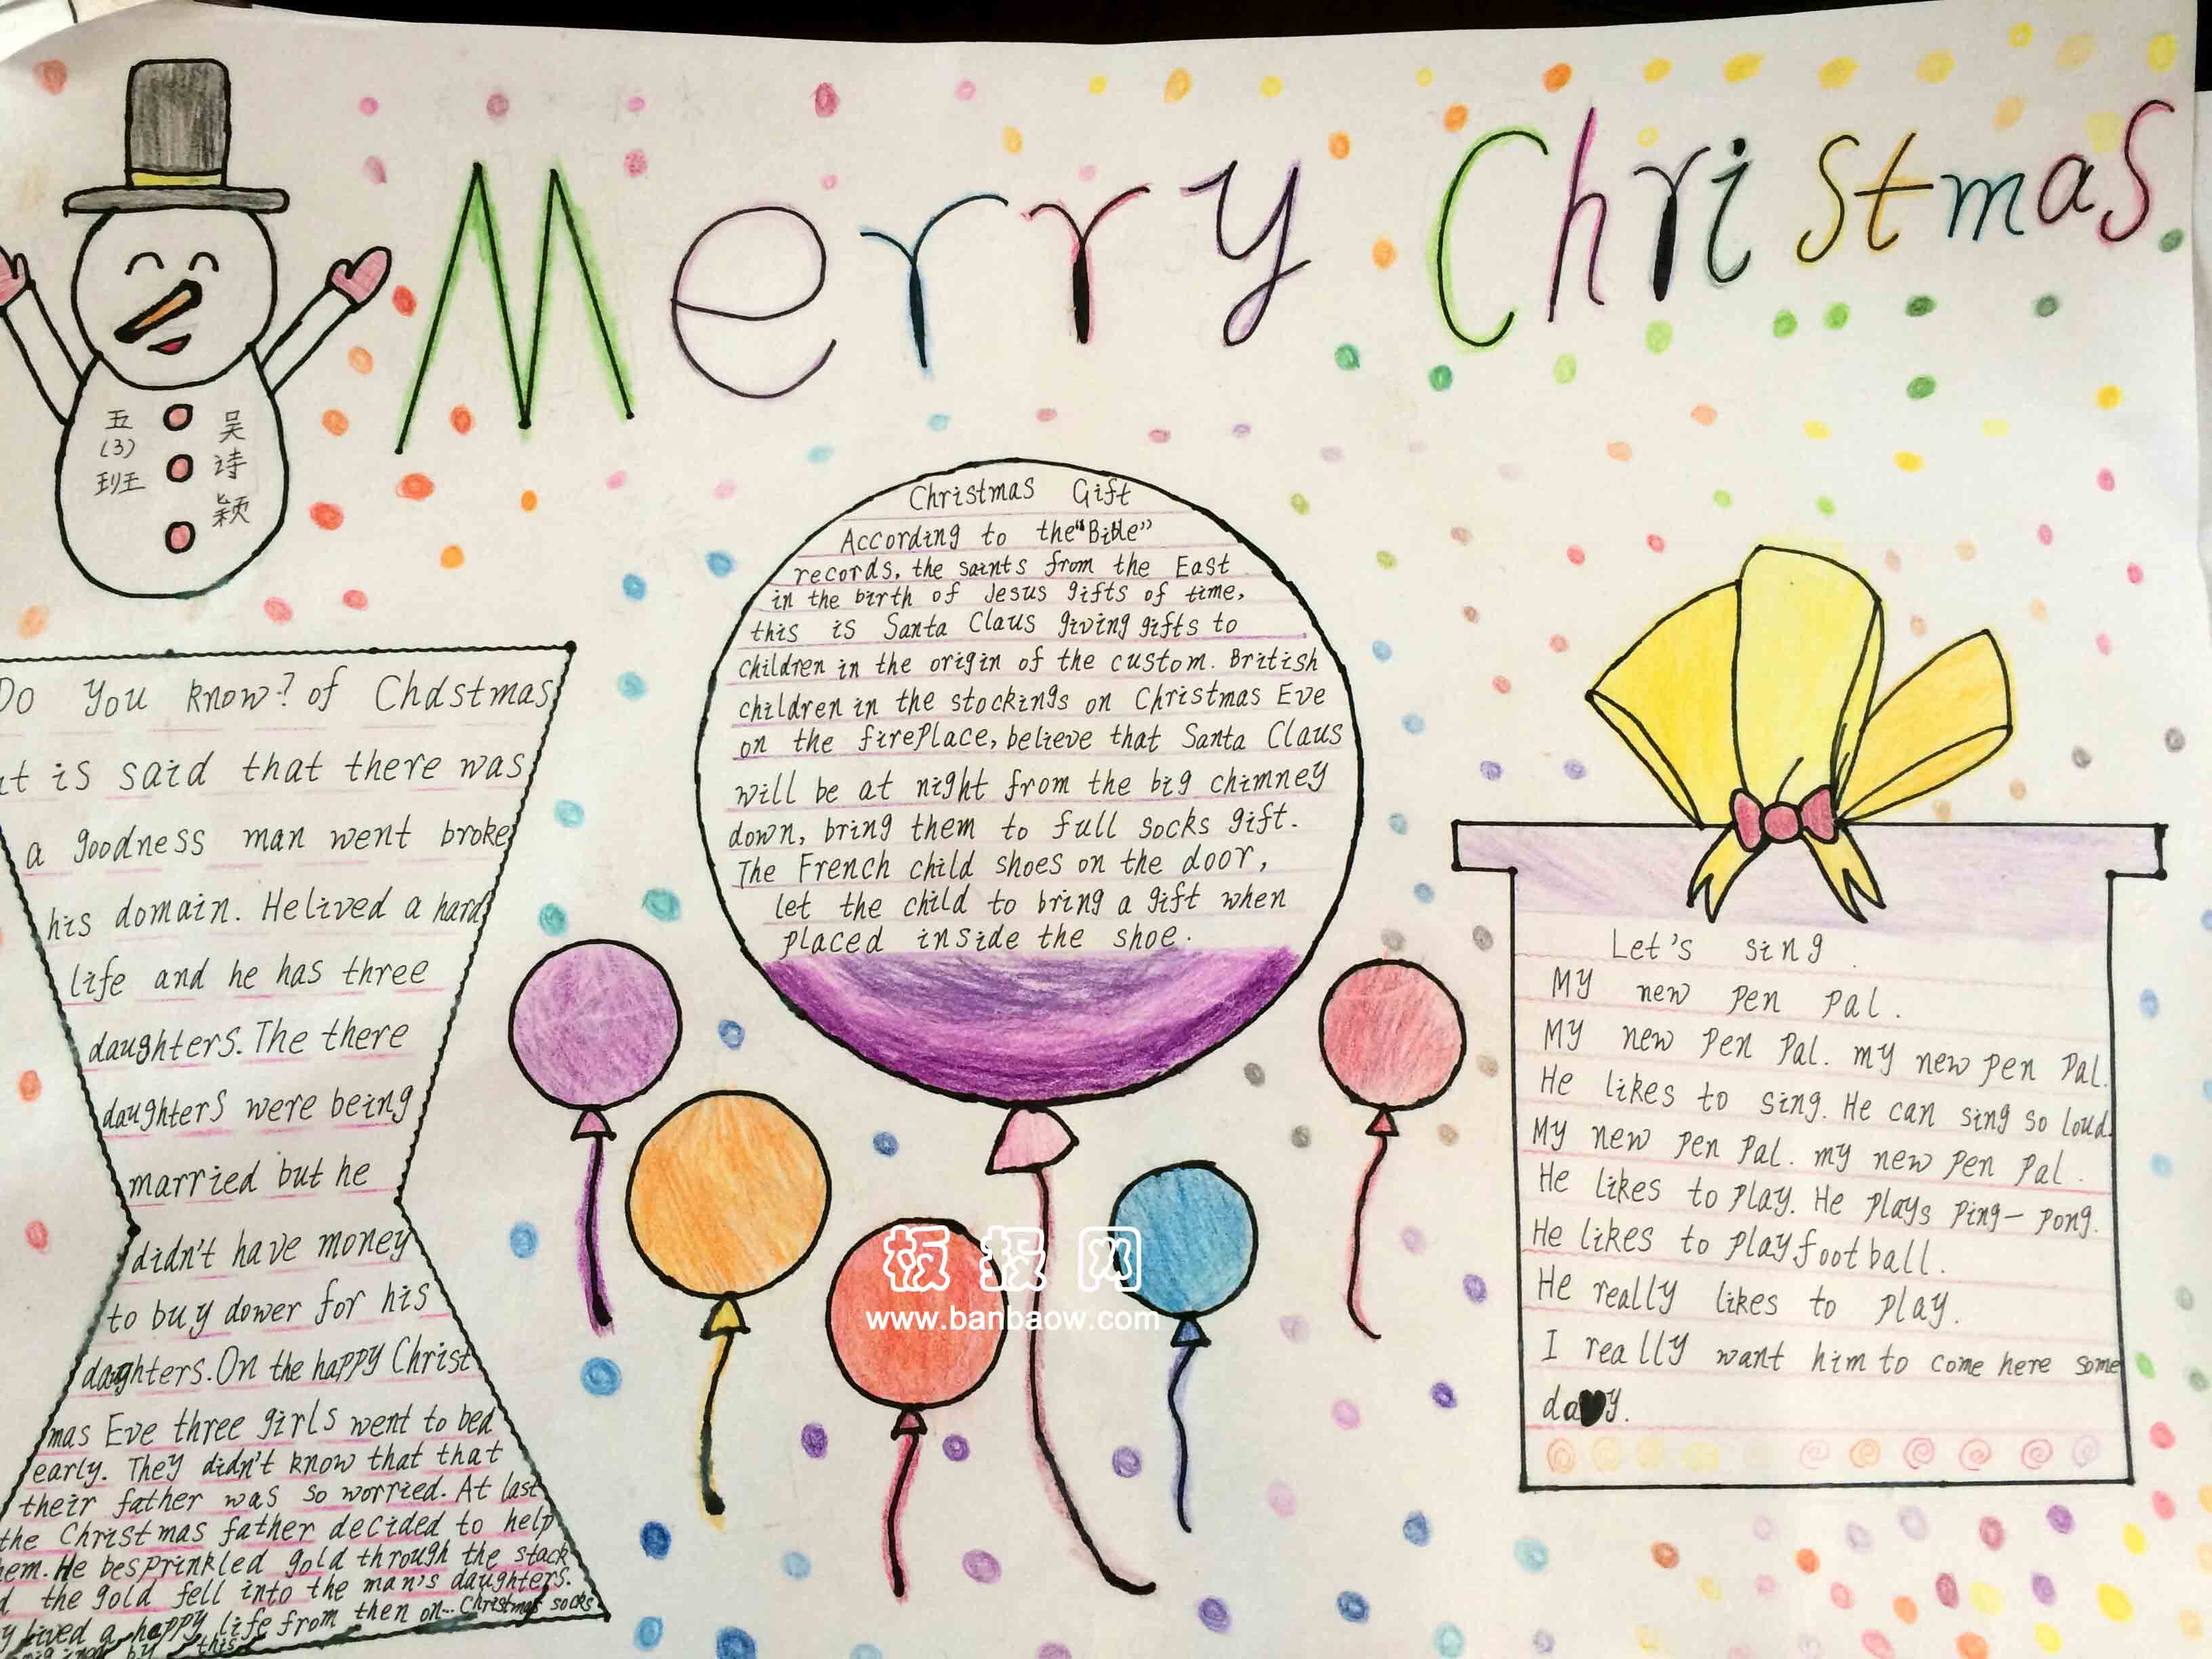 Merry Christmas
五
(3)
班
吴
诗
颖
Do you know? of Chdstmas
it is said that there was
a goodness man went broke
his domain. He lived a hard
life and he has three
daughters. The there
daughters were being
married but he
didn't have money
to buy dower for his
daughters. On the happy Christ
mas Eve three girls went to bed
early. They didn't know that that
their father was so worried. At last
the Christmas father decided to help
hem. He besprinkled gold through the stack
d the gold fell into the man's daughters.
y lived a happy life from then on... Christmas socks
by this
Christmas Gift
According to the "Bible"
records, the saints from the East
in the birth of Jesus gifts of time,
this is Santa Claus giving gifts to
children in the origin of the custom. British
children in the stockings on Christmas Eve
on the fireplace, believe that Santa Claus
will be at night from the big chimney
down, bring them to full socks gift.
The French child shoes on the door,
let the child to bring a gift when
placed inside the shoe.
Let's sing
My new pen pal.
My new pen pal. my new pen pal.
He likes to sing. He can sing so loud.
My new pen pal. my new pen pal.
He likes to play. He plays ping-pong.
He likes to play football.
He really likes to play.
I really want him to come here some
day.
板报网
www.banbaow.com